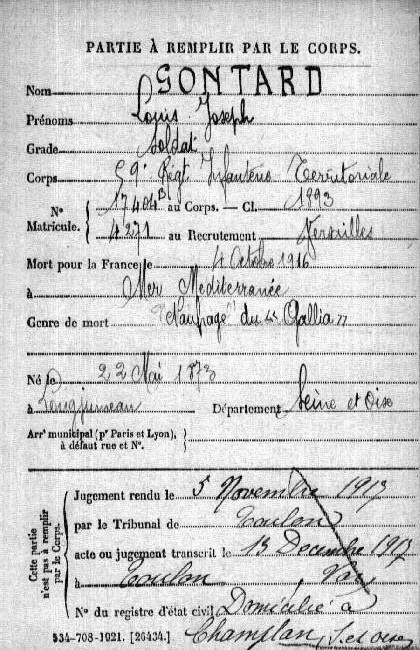 PARTIE À REMPLIR PAR LE CORPS.
Nom GONTARD
Prénoms Louis Joseph
Grade Soldat
Corps 59e Regt Infanterie Territoriale
N° Matricule. { 17404 Bis au Corps. — Cl. 1893
4271 au Recrutement Versailles
Mort pour la France le 4 Octobre 1916
à Mer Mediterranée
Genre de mort "Naufrage" du "Gallia"
Né le 22 Mai 1873
à Longjumeau Département Seine et Oise
Arrt municipal (pr Paris et Lyon), }
à défaut rue et N°.
Cette partie n'est pas à remplir par le Corps.
Jugement rendu le 5 Novembre 1917
par le Tribunal de Toulon
acte ou jugement transcrit le 13 Decembre 1917
à Toulon Var
N° du registre d'état civil Domicilié à
534-708-1921. [26434.] Champlan, S. et Oise